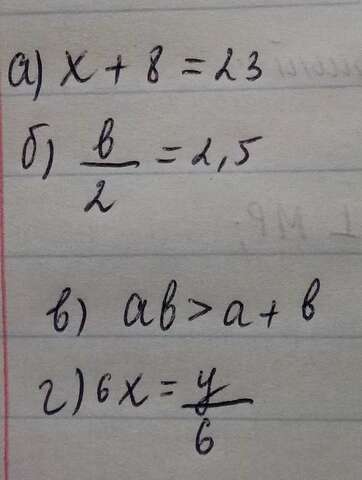 а) x + 8 = 23
б) b/2 = 2,5
в) ab > a + b
г) 6x = y/6